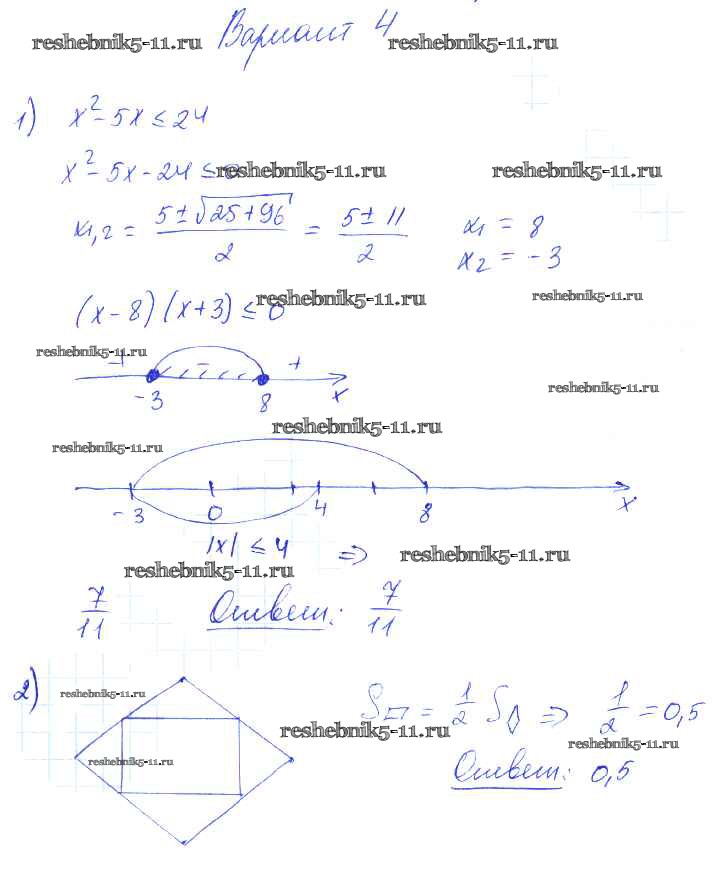 reshebnik5-11.ru Вариант 4 reshebnik5-11.ru
1) x² - 5x ≤ 24
x² - 5x - 24 ≤ 0 reshebnik5-11.ru reshebnik5-11.ru
x₁,₂ = (5 ± √(25 + 96))/2 = (5 ± 11)/2 x₁ = 8
x₂ = -3
(x - 8)(x + 3) ≤ 0 reshebnik5-11.ru reshebnik5-11.ru
reshebnik5-11.ru
+ - +
reshebnik5-11.ru
-3 8 x
reshebnik5-11.ru
reshebnik5-11.ru
-3 0 4 8 x
|x| ≤ 4 ⇒ reshebnik5-11.ru
reshebnik5-11.ru
7/11 Ответ: 7/11
2) reshebnik5-11.ru S▱ = 1/2 S◊ ⇒ 1/2 = 0,5
reshebnik5-11.ru
reshebnik5-11.ru
reshebnik5-11.ru Ответ: 0,5